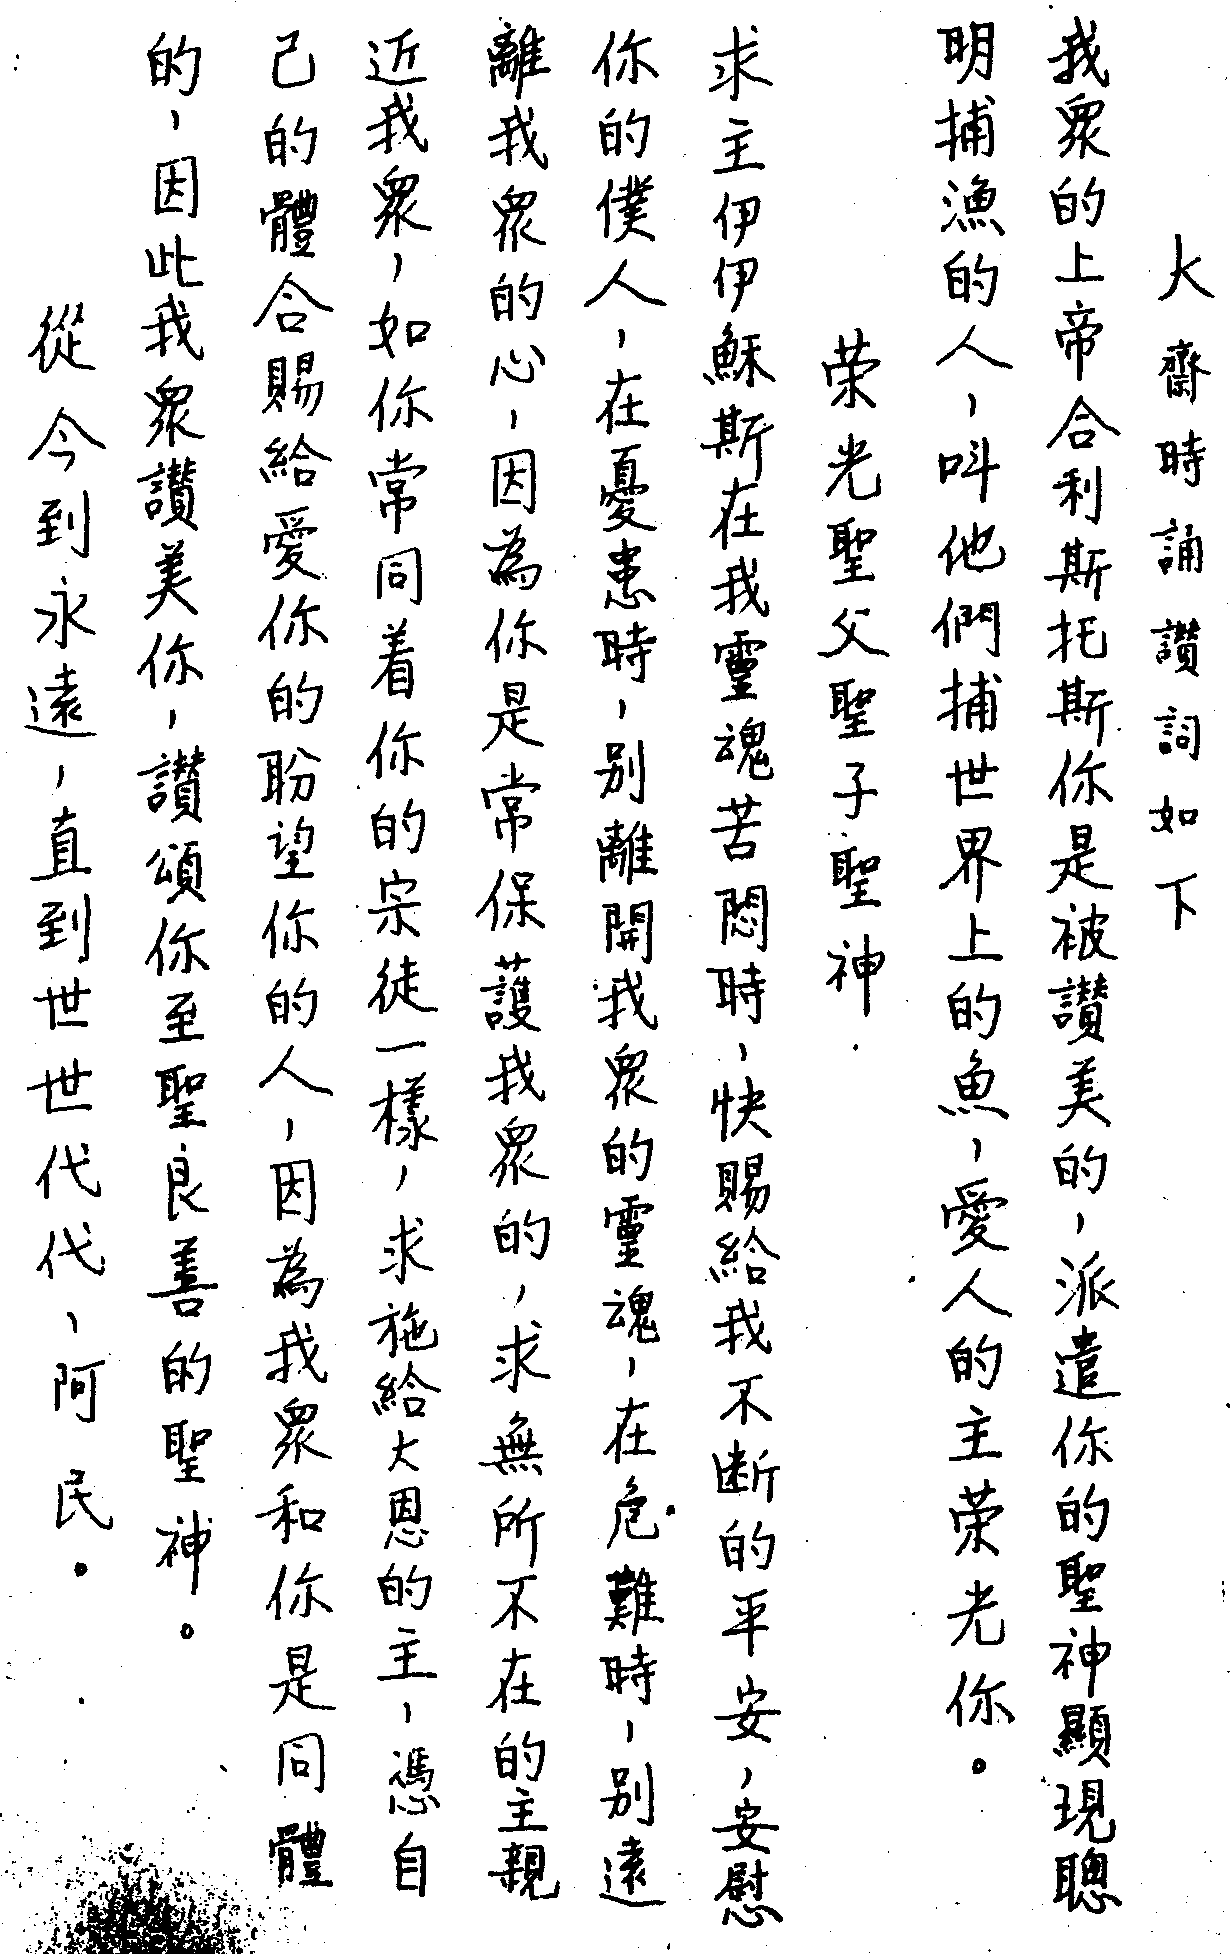 大齋時誦讚詞如下
我眾的上帝合利斯托斯你是被讚美的，派遣你的聖神顯現聰
明捕漁的人，叫他們捕世界上的魚，愛人的主荣光你。
荣光聖父聖子聖神.
求主伊伊穌斯在我靈魂苦悶時，快賜給我不断的平安，安慰
你的僕人，在憂患時，別離開我眾的靈魂，在危難時，別遠
離我眾的心，因為你是常保護我眾的，求無所不在的主親
近我眾，如你常同着你的宗徒一樣，求施給大恩的主，憑自
己的體合賜給愛你的盼望你的人，因為我眾和你是同體
的，因此我眾讚美你，讚頌你至聖良善的聖神。
從今到永遠，直到世世代代，阿民。